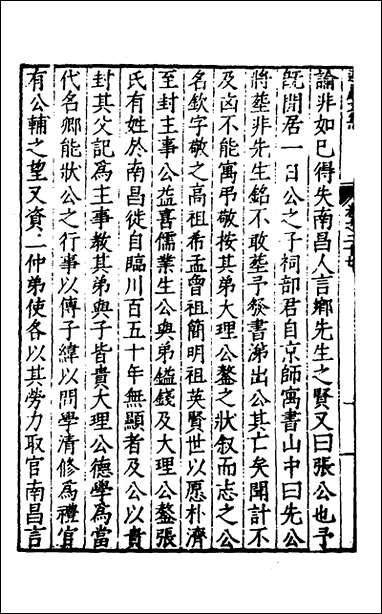 論非如已得失南昌人言鄉先生之賢又曰張公也予
既閒居一日公之子祠部君自京師寓書山中曰先公
將塟非先生銘不敢塟予發書涕出公其亡矣聞訃不
及㐫不能寓弔敬按其弟大理公鏊之狀叙而志之公
名欽字敬之高祖希孟曾祖簡明祖英賢世以愿朴濟
至封主事公益喜儒業生公與弟鎰錢及大理公鏊張
氏有姓於南昌徙自臨川百五十年無顯者及公以貴
封其父記爲主事教其弟與子皆貴大理公德學爲當
代名卿能狀公之行事以傳子緯以問學清修爲禮官
有公輔之望又資二仲弟使各以其勞力取官南昌言